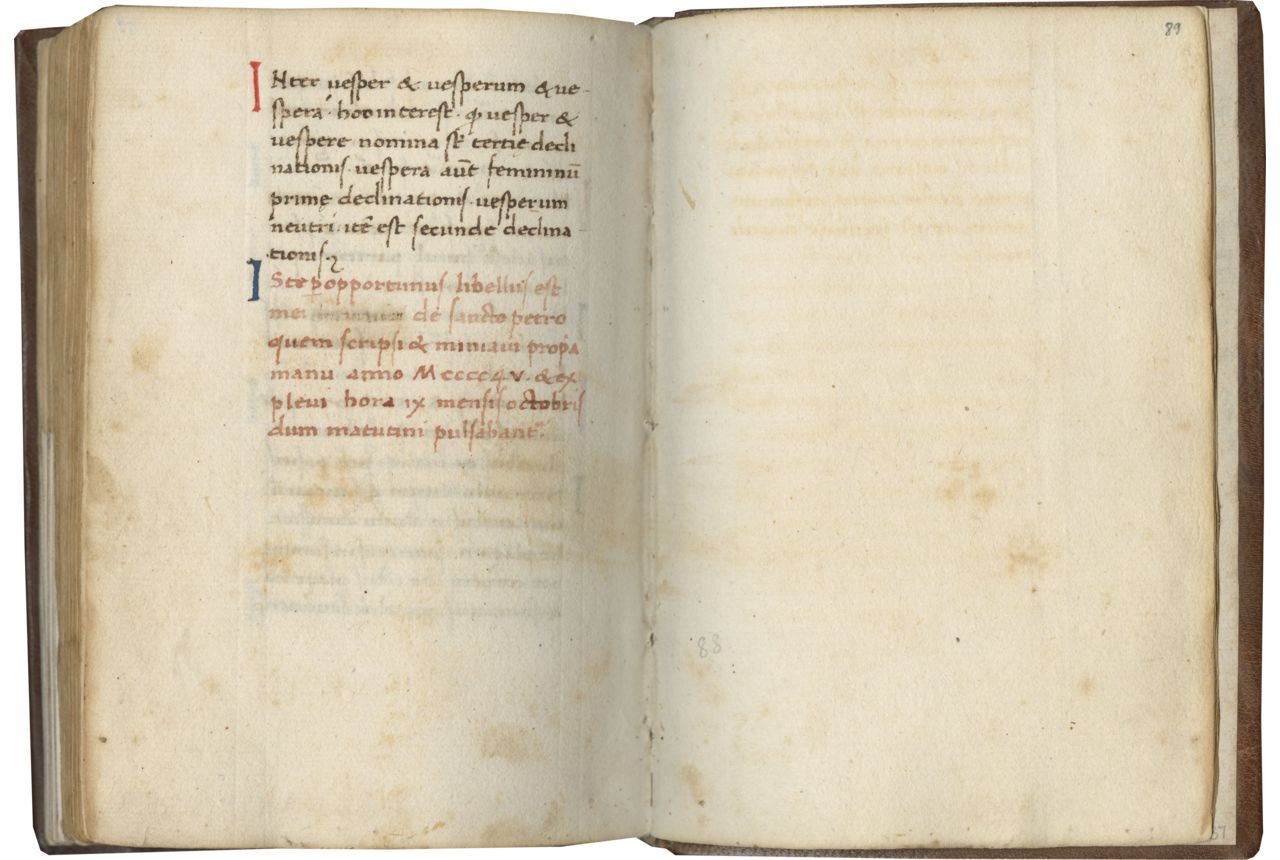 INter uesper & uesperum & ue-
sperā· hoc interest· ꝙ uesper &
uespere nomina st̄ tertię decli
nationis· uespera aūt feminınū
primę declinationis· uesperum
neutri· itē est secunde declina-
tionis
ISte ꝑopportunus libellus est
mei de sancto petro
quem scripsi & miniaui propa
manu anno Mcccc v & ex
pleui hora ix mensis octobris
dum matutini pulsabant᷑·
89
88